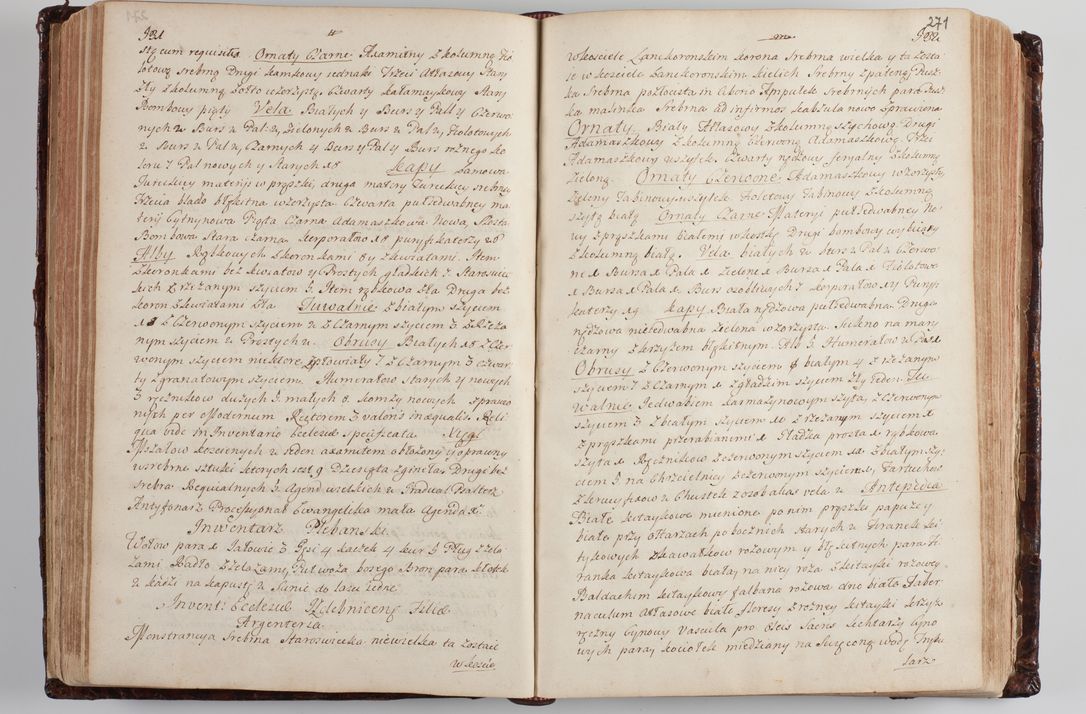 271
stęcum requisitis Ornaty Czarne Axamitny z kolumną Fio
letową srebrną Drugi kamkowy jednaki Trzeci Attasowy Stary
Zły z kolumną żołto wzorzystą Czwarty kałamaykowy Stary
Bombowy piąty Vela Białych y Burs y Pall y Czerwo
nych 2 Burs 2 Pal: 2, Zielonych 2 Burs 2 Pal 2, Fioletowych
2 Burs 2 Pal 2, Czarnych 4 Burs y Pal y Burs rożnego ko
loru 7 Pal nowych y Starych 18 Kapy Lamowa
Tureckiey materyi w prążki, druga matery Tureckiey srebrna
Trzecia blado błękitna wzorzysta Czwarta pułiedwabney ma
teryi Cytrynowa Piąta Czarna Adamaszkowa Nowa, Szosta
Bombowa Stara Czarna Korporałow 18 puryfikaterzy 26
Alby Rąbkowych z koronkami 8 y z kwiatami Item
z koronkami bez kwiatow y Prostych gładkich 7 Staroswie
ckich z rzezanym szyciem 3 Item rąbkowa zła Druga bez
koron z kwiatami zła Tuwalnie z białym szyciem
18 z Czerwonym szyciem 2 z Czarnym szyciem 3 z Rzeza
nym szyciem 2 Prostych 2. Obrusy Białych 18 z Czer
wonym szyciem niektore spłowiały 7 z Czarnym 3 czwar
ty z granatowym szyciem. Humerałow Starych y nowych
3 ręcznikow dużych 3 małych 8. komży nowych sprawio
nych per Modernum Rectorem 3 valoris inæqualis. Reli
qua vide in Inventario Ecclesiæ specificata Xięgi
Mszałow kościelnych 2 jeden axamitem obłożony y oprawny
w srebrne sztuki ktorych jest 9 Dziesiąta zginęła, Drugi bez
srebra Requialnych 3. Agend wielkich 2 Graduał Psałterz
Antyfonarz Procesyonał Ewangeliczka mała Agenda 1.
Inwentarz Plebanski.
Wołow para 1 Jałowic 3 Gęsi 4 kaczek 4 kur 3 Pług z żela
zami Radło z żelazami, Puł woza bosego Bron para kłotek
2 kadzi na kapustę 2 Sanie do lasu jedne
Invent: Ecclesiæ Izdebnicens: Filiæ
Argenteria.
Monstrancya Srebrna Staroswiecka niewielka ta zostaie
w kościo
271
w kosciele Lanckoronskim korona Srebrna wielka y ta zosta
ie w kosciele Lanckoronskim kielich Srebrny z pateną Pusz
ka Srebrna pozłocista in Ciborio Ampułek Srebrnych para Pusz
ka malinka Srebrna ad infirmos kapsula nowo sprawiona
Ornaty. Biały Attasowy z kolumną szychową Drugi
Adamaszkowy z kolumną Czerwoną Adamaszkową Trzeci
Adamaszkowy wszystek Czwarty nędzowy feryalny z kolumną
Zieloną. Ornaty Czerwone. Adamaszkowy wzorzysty
Zielony Tabinowy wszystek Fioletowy Tabinowy z kolumną
szytą białą Ornaty Czarne Materyi pułiedwabney No
wy z prążkami białemi w kostkę Drugi bombowy wybiiany
z kolumną białą. Vela białych 2 Burs 2 Pal 2 Czerwo
ne 1 Bursa 1 Pala 1 Zielone 1 Bursa 1 Pala 1 Fioletowe
1 Bursa 1 Pala 1 Burs osobliwych 7 korporałow 14 Puryfi
katerzy 19. Kapy Biała nędzowa pułiedwabna Druga
nędzowa niejedwabna Zielona wzorzysta. Sukno na mary
czarny z krzyżem błękitnym. Alb 3 Humerałow 2 Pasek
Obrusy z Czerwonym szyciem 8 białym 4 z rzezanym
szyciem 7 z Czarnym 1 z gładzim szyciem zły jeden. Tu
walnie Jedwabiem karmazynowym szyta, z Czerwonym
szyciem 3 z białym szyciem 10 z rzezanym szyciem 1
z prążkami przerabianemi 1 Gładka prosta 1 rąbkowa
szyta 1 Ręcznikow z czerwonym szyciem 11 z białym szy:
ciem 3 na Chrzcielnicy z czerwonym szyciem 1, Fartuchow
z krucyfixow 2 Chustek z ozobalias vela 2 Antepedia
Białe kitaykowe mienione po nim prążki papuzey
białe przy ołtarzach pobocznych starych 2 Firanek ki
taykowych z kawałkow rożowym y błękitnych para Fi
ranka kitaykowa biała, na niey roża z kitayki rożowey
Baldachim kitaykowy falbana rożowa dno białe Taber
naculum Attasowe białe floresy z rożney kitayki krzyżyk
ręczny Cynowy Vascula pro Oleis Sacris Lichtarzy Cyno
wych pary, kociołek miedziany na Święconą wodę Trybu
larz